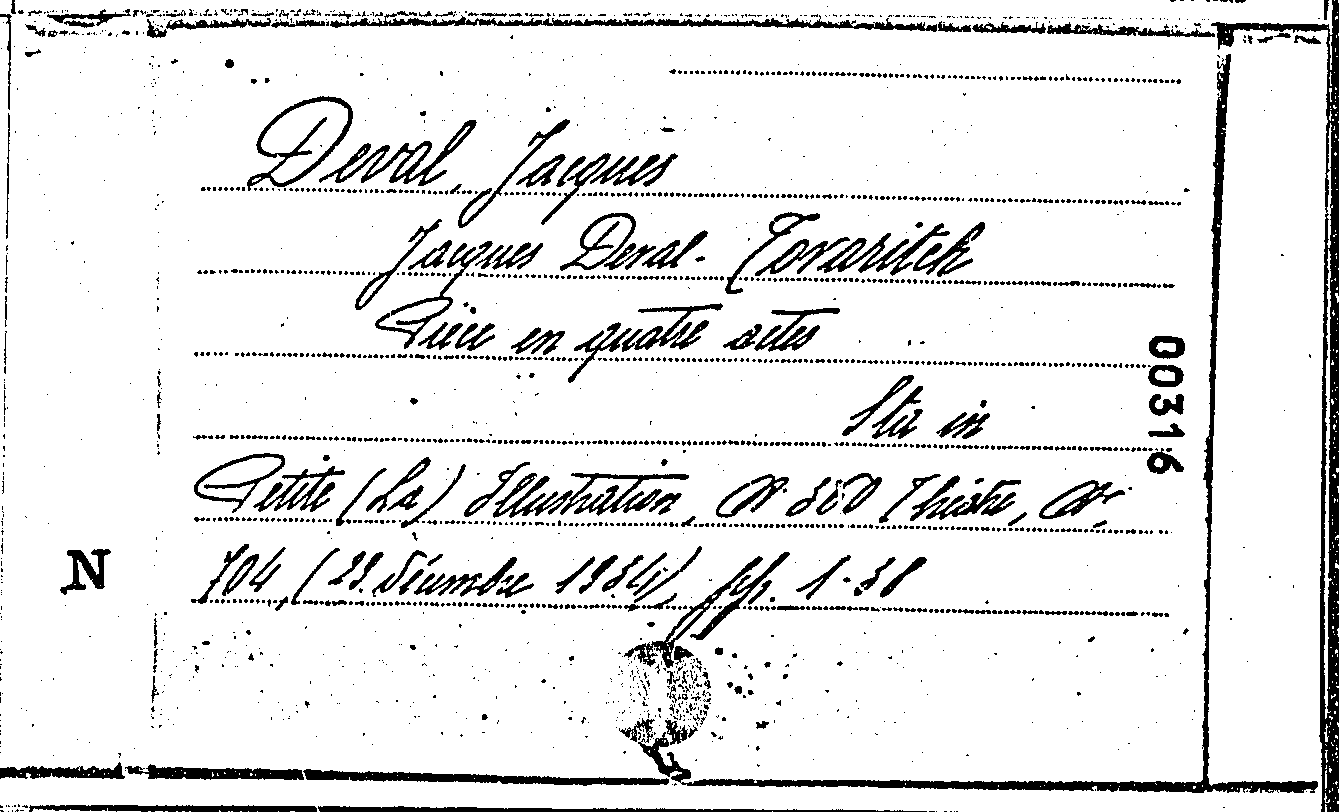 Deval, Jacques
Jacques Deval. Tovaritch
Pièce en quatre actes
Sta in
00316
Petite (La) Illustration, N. 380 Théâtre, N.
N
704, (29. Décembre 1934), pp. 1-38